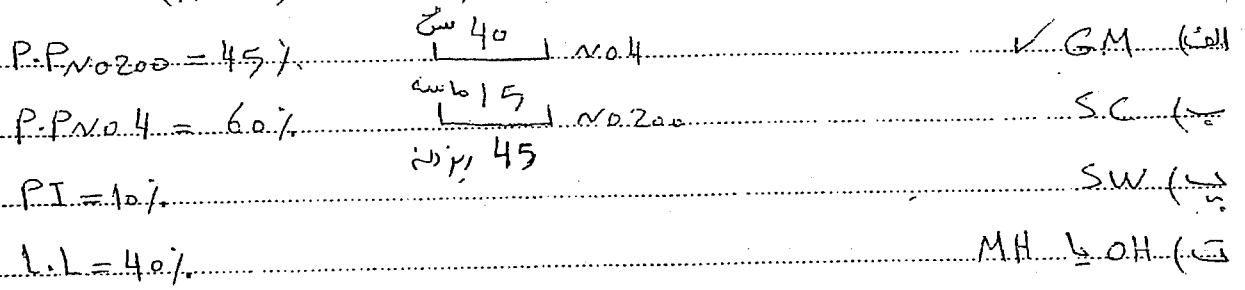 P.P No 200 = 45 % شن 40 No.4 الف) GM ✓
P.P No 4 = 60 % ماسه 15 No.200 ب) S.C
ریزدانه 45
PI = 10 % پ) SW
L.L = 40 % ت) OH یا MH